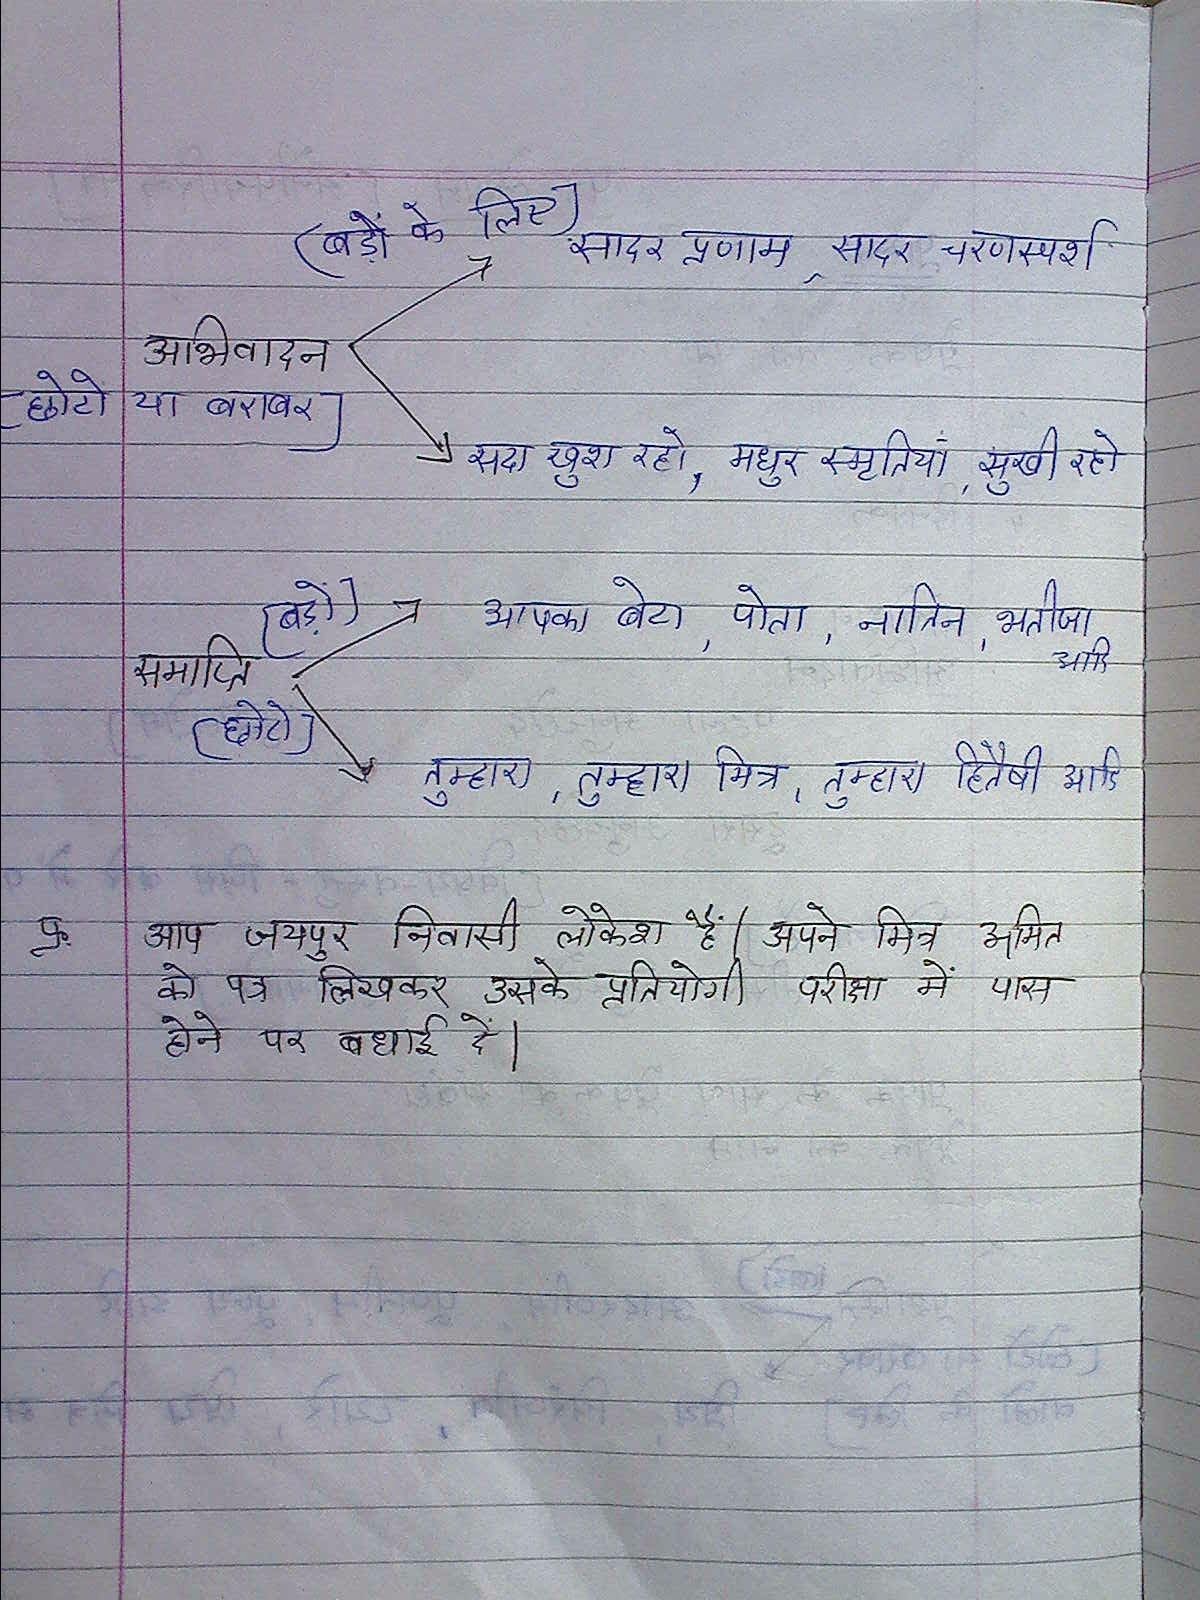 (बड़ों के लिए)
सादर प्रणाम, सादर चरणस्पर्श
अभिवादन
(छोटो या बराबर)
सदा खुश रहो, मधुर स्मृतियां, सुखी रहो
(बड़ों)
आपका बेटा, पोता, नातिन, भतीजा
आदि
समाप्ति
(छोटो)
तुम्हारा, तुम्हारा मित्र, तुम्हारा हितैषी आदि
प्र. आप जयपुर निवासी लोकेश हैं। अपने मित्र अमित
को पत्र लिखकर उसके प्रतियोगी परीक्षा में पास
होने पर बधाई दें।